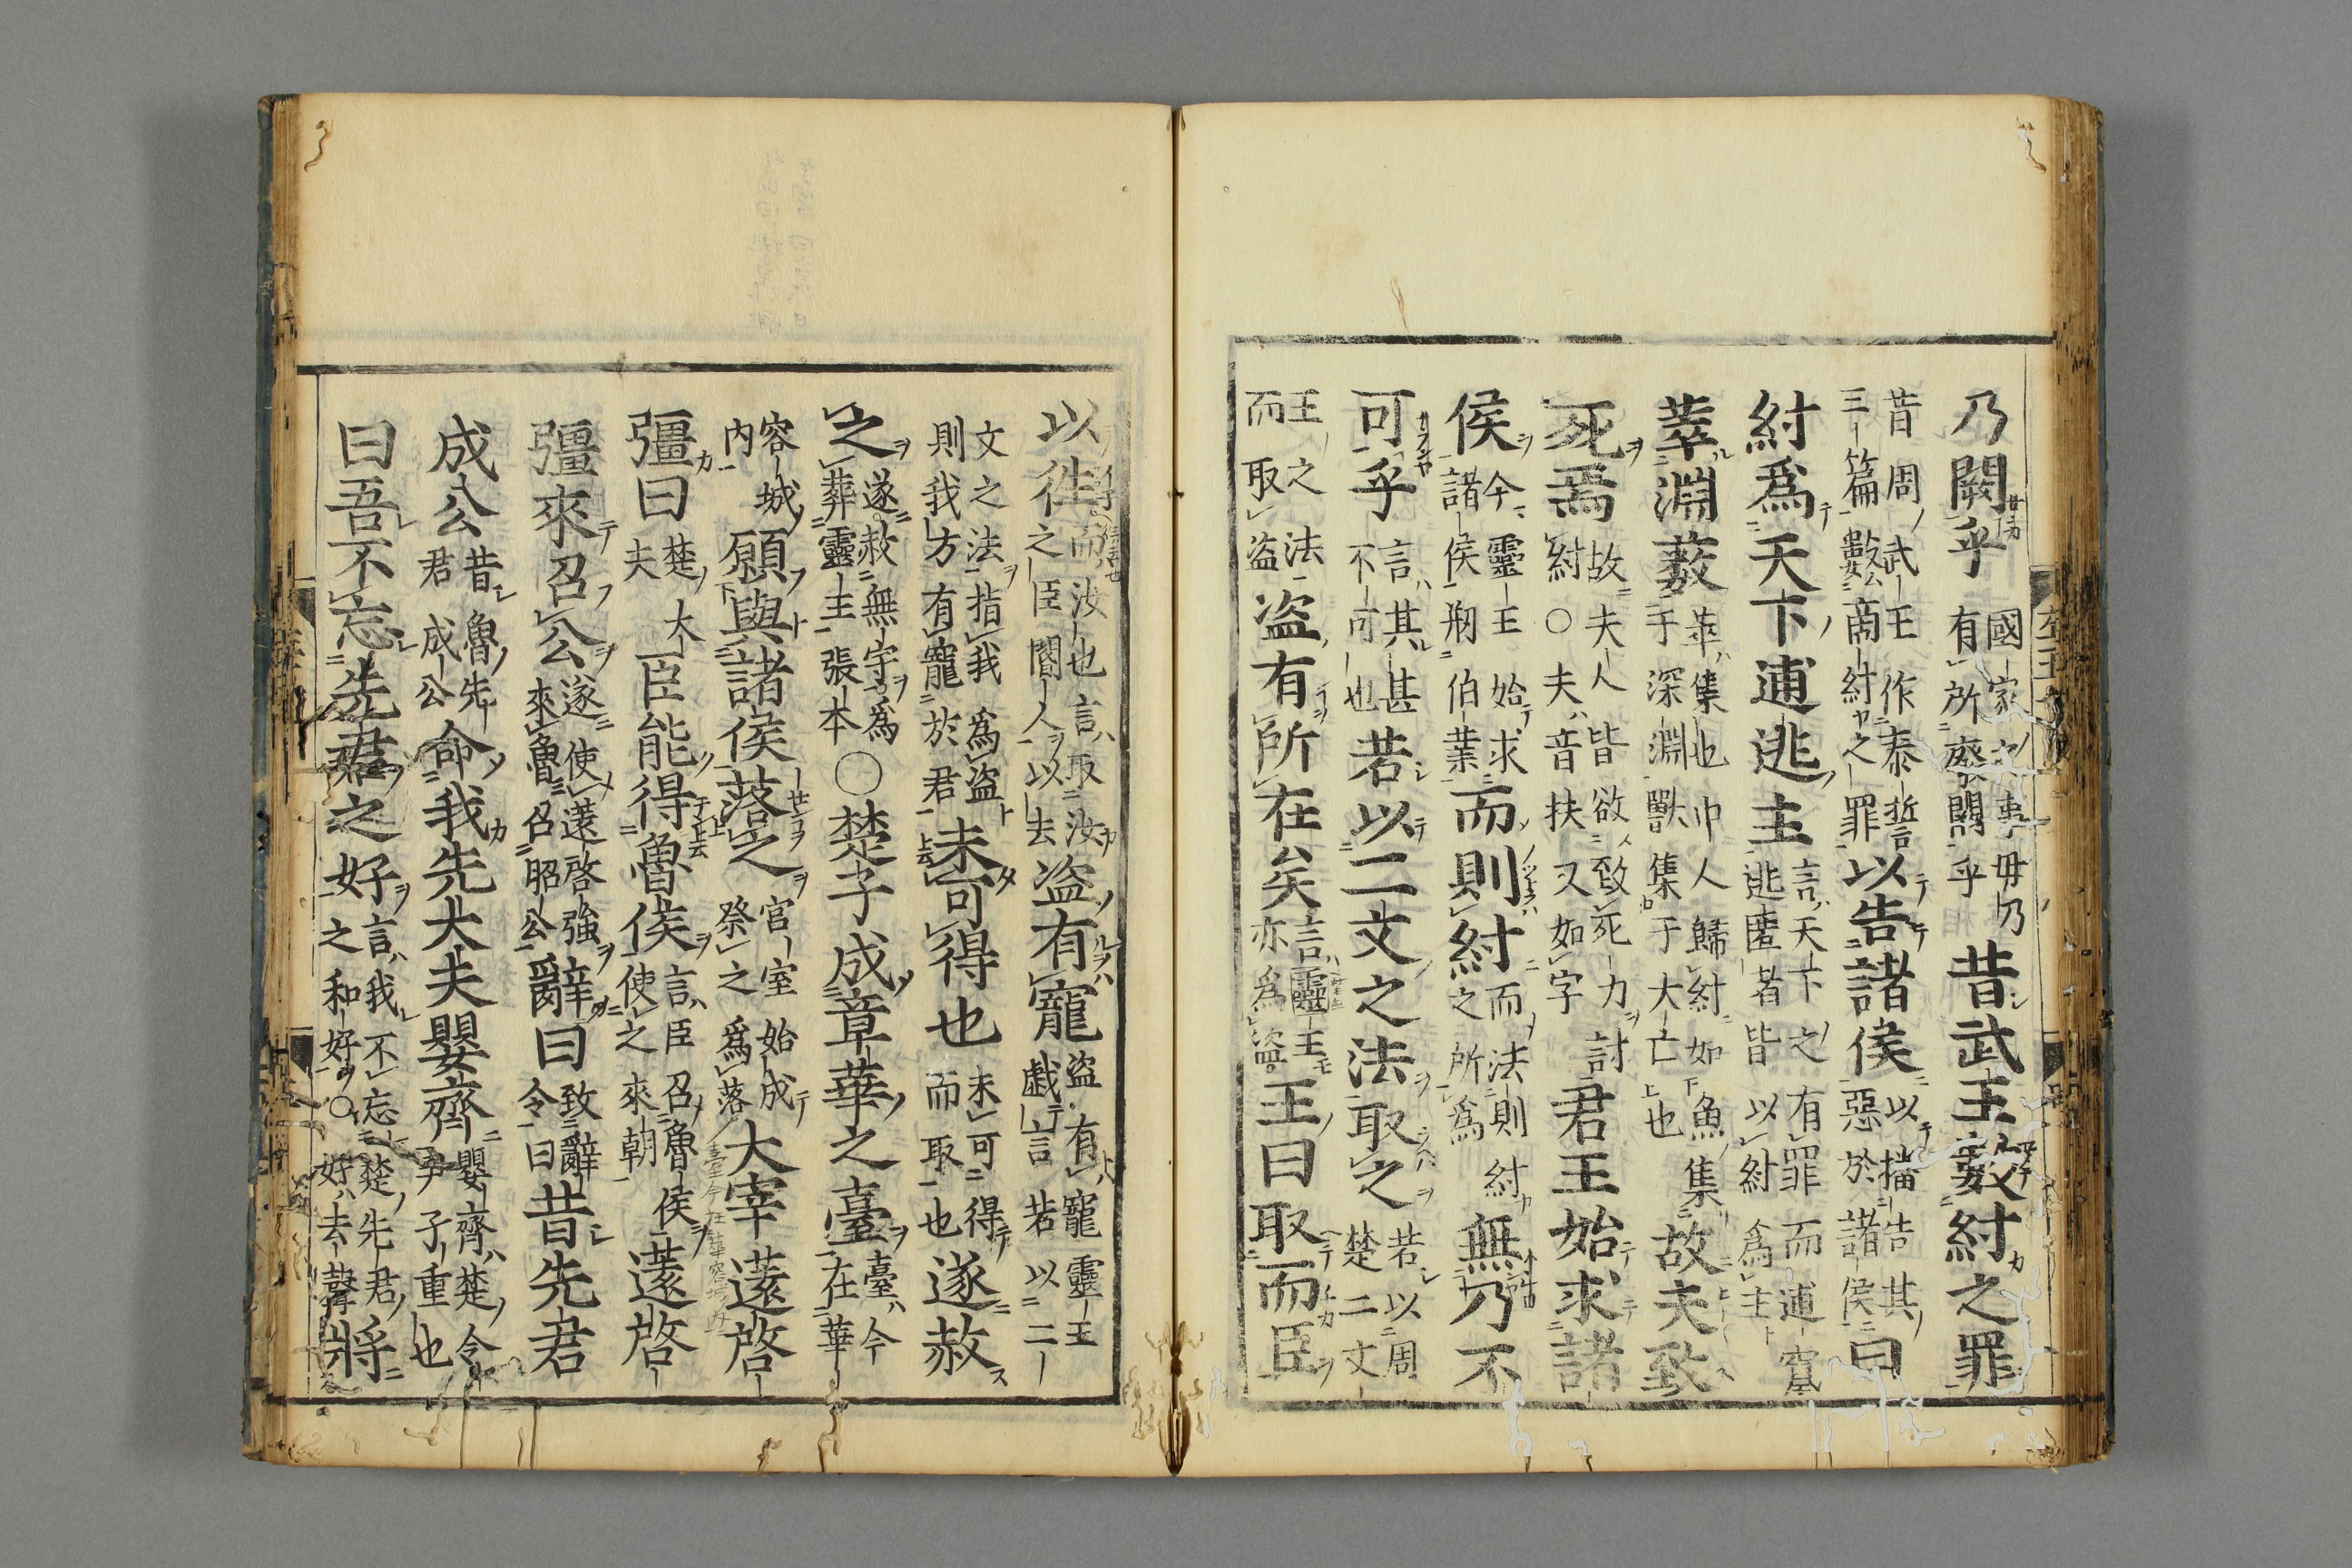 乃闕乎國家之事毋乃有所廢闕乎昔武王數紂之罪
昔周武王作泰誓三篇數商紂之罪以告諸侯以播告其惡於諸侯曰
紂爲天下逋逃主言天下之有罪而逋竄逃匿者皆以紂爲主
萃淵藪萃集也巾人歸紂如魚集于深淵獸集于大亡也故夫致
死焉故夫人皆欲致死力討紂○夫音扶又如字君王始求諸
侯今靈王始求諸侯剏伯業而則紂而法則紂之所爲無乃不
可乎言其甚不可也若以二文之法取之若以周楚二文
王之法而取盗盗有所在矣言靈王亦爲盗王曰取而臣
以徃而汝也言取汝之臣閽人以去盗有寵盗有寵靈王戱言若以二
文之法指我爲盗則我方有寵於君未可得也未可得而取也遂赦
之遂赦無宇爲葬靈王張本○楚子成章華之臺臺今在華
容城内願與諸侯落之宮室始成祭之爲落大宰薳啓
彊曰楚大夫臣能得魯侯言臣召魯侯使之來朝薳啓
彊來召公遂使薳啓強來魯召昭公辭曰致辭令曰昔先君
成公昔魯先君成公命我先大夫嬰齊嬰齊楚令尹子重也
曰吾不忘先君之好言我不忘楚先君之和好○好去聲將